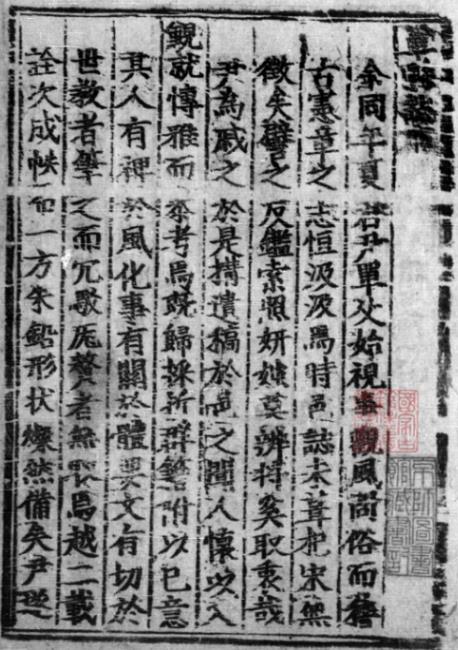 余同年夏君尹單父始視事觀風問俗而稽
古憲章之志恒汲汲焉時邑誌未葺杞宋無
徵矣譬之反鑑索照妍媸莫辨將奚取衷哉
尹為戚之於是搆遺稿於邑之聞人懷以入
覲就博雅而參考焉既歸採折群籍附以已意
其人有裨於風化事有關於體要文有切於
世教者筆之而冗厖贅者無焉越二載
詮次成帙而一方朱鉛形狀燦然備矣尹